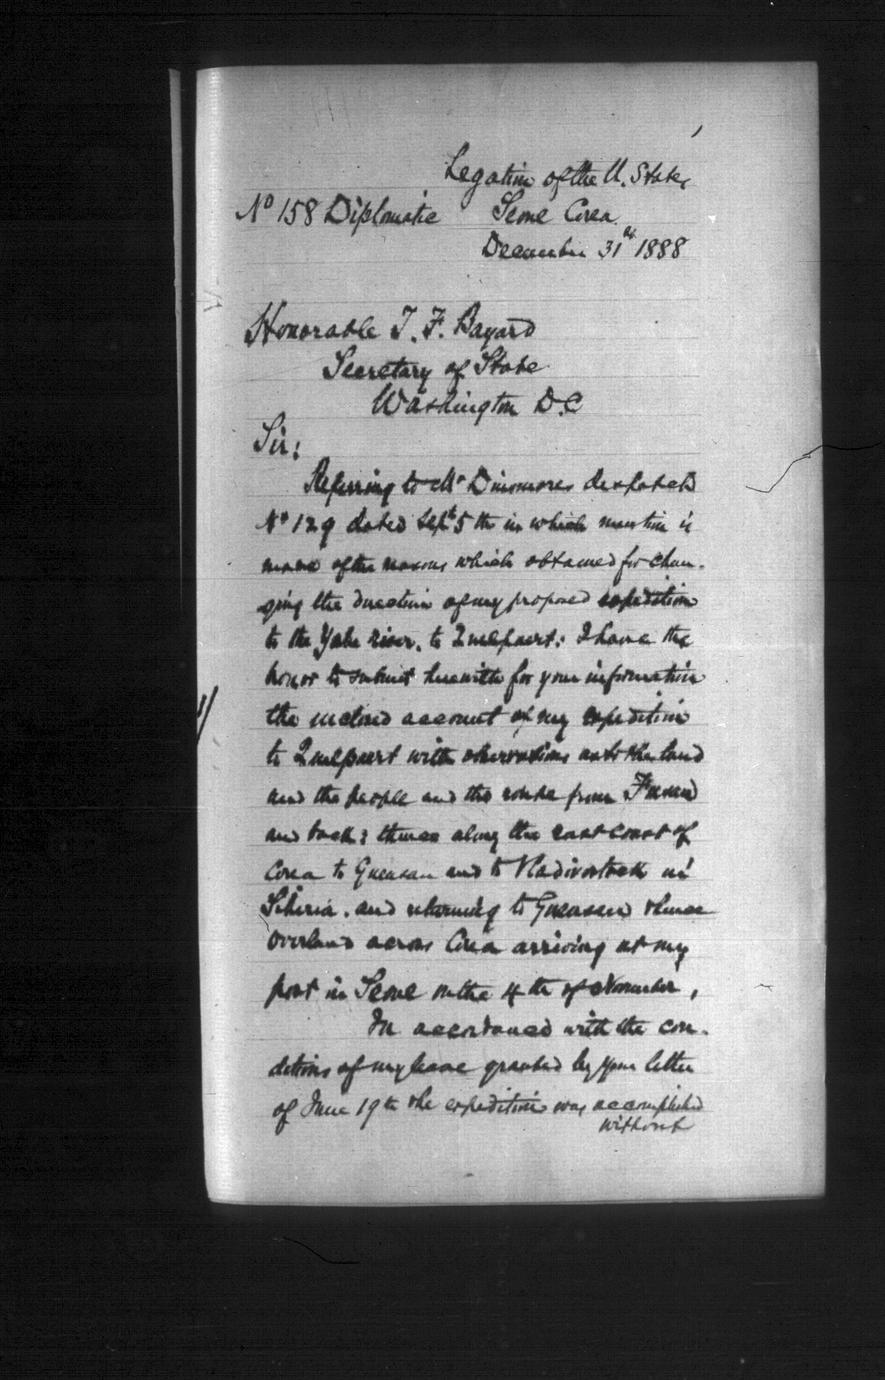 1
Legation of the U. States
No 158 Diplomatic Seoul Corea
December 31st 1888
Honorable T. F. Bayard
Secretary of State
Washington D.C
Sir:
Referring to Mr Dinsmores despatch
No 129 dated Sept 5th in which mention is
made of the reasons which obtained for chan-
ging the direction of my proposed expedition
to the Yalu river, to Quelpaert: I have the
honor to submit herewith for your information
the inclosed account of my expedition
to Quelpaert with observations as to the land
and the people and the route from Fusan
and back; thence along the east coast of
Corea to Guensan and to Vladivostock in
Siberia. and returning to Guensan thence
overland across Corea arriving at my
post in Seoul on the 4th of November,
In accordance with the con-
ditions of my leave granted by your letter
of June 19th the expedition was accomplished
without